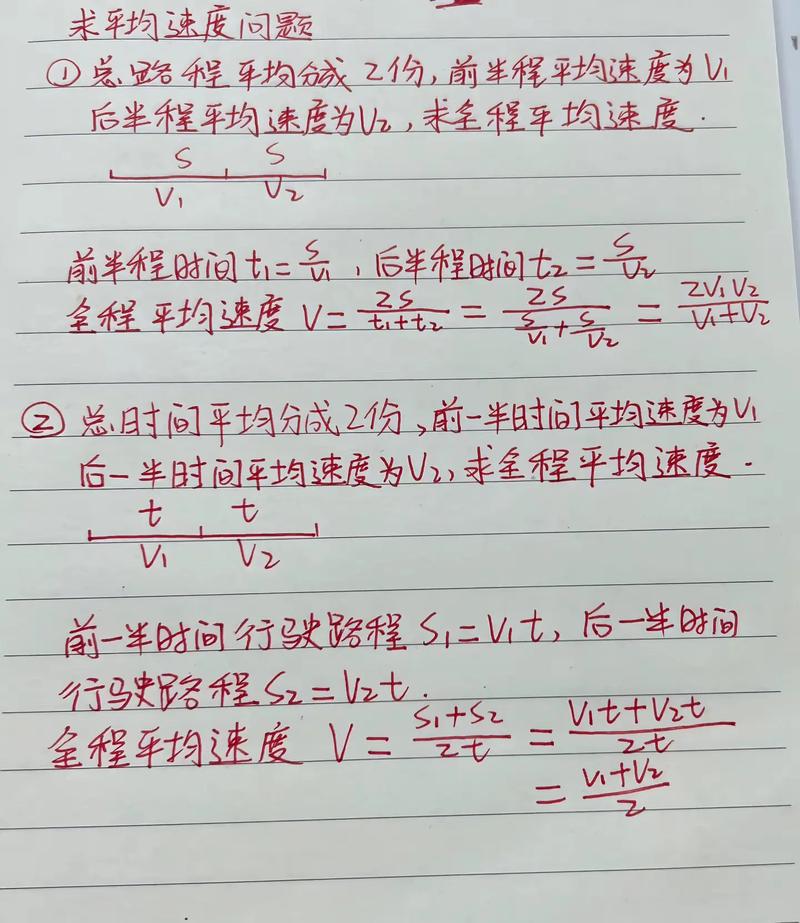 求平均速度问题
① 总路程平均分成2份,前半程平均速度为V₁
后半程平均速度为V₂,求全程平均速度.
S S
V₁ V₂
前半程时间t₁=S/V₁,后半程时间t₂=S/V₂
全程平均速度 V=2S/(t₁+t₂)=2S/(S/V₁+S/V₂)=2V₁V₂/(V₁+V₂)
② 总时间平均分成2份,前一半时间平均速度为V₁
后一半时间平均速度为V₂,求全程平均速度.
t t
V₁ V₂
前一半时间行驶路程S₁=V₁t,后一半时间
行驶路程S₂=V₂t.
全程平均速度 V=(S₁+S₂)/2t=(V₁t+V₂t)/2t
=(V₁+V₂)/2